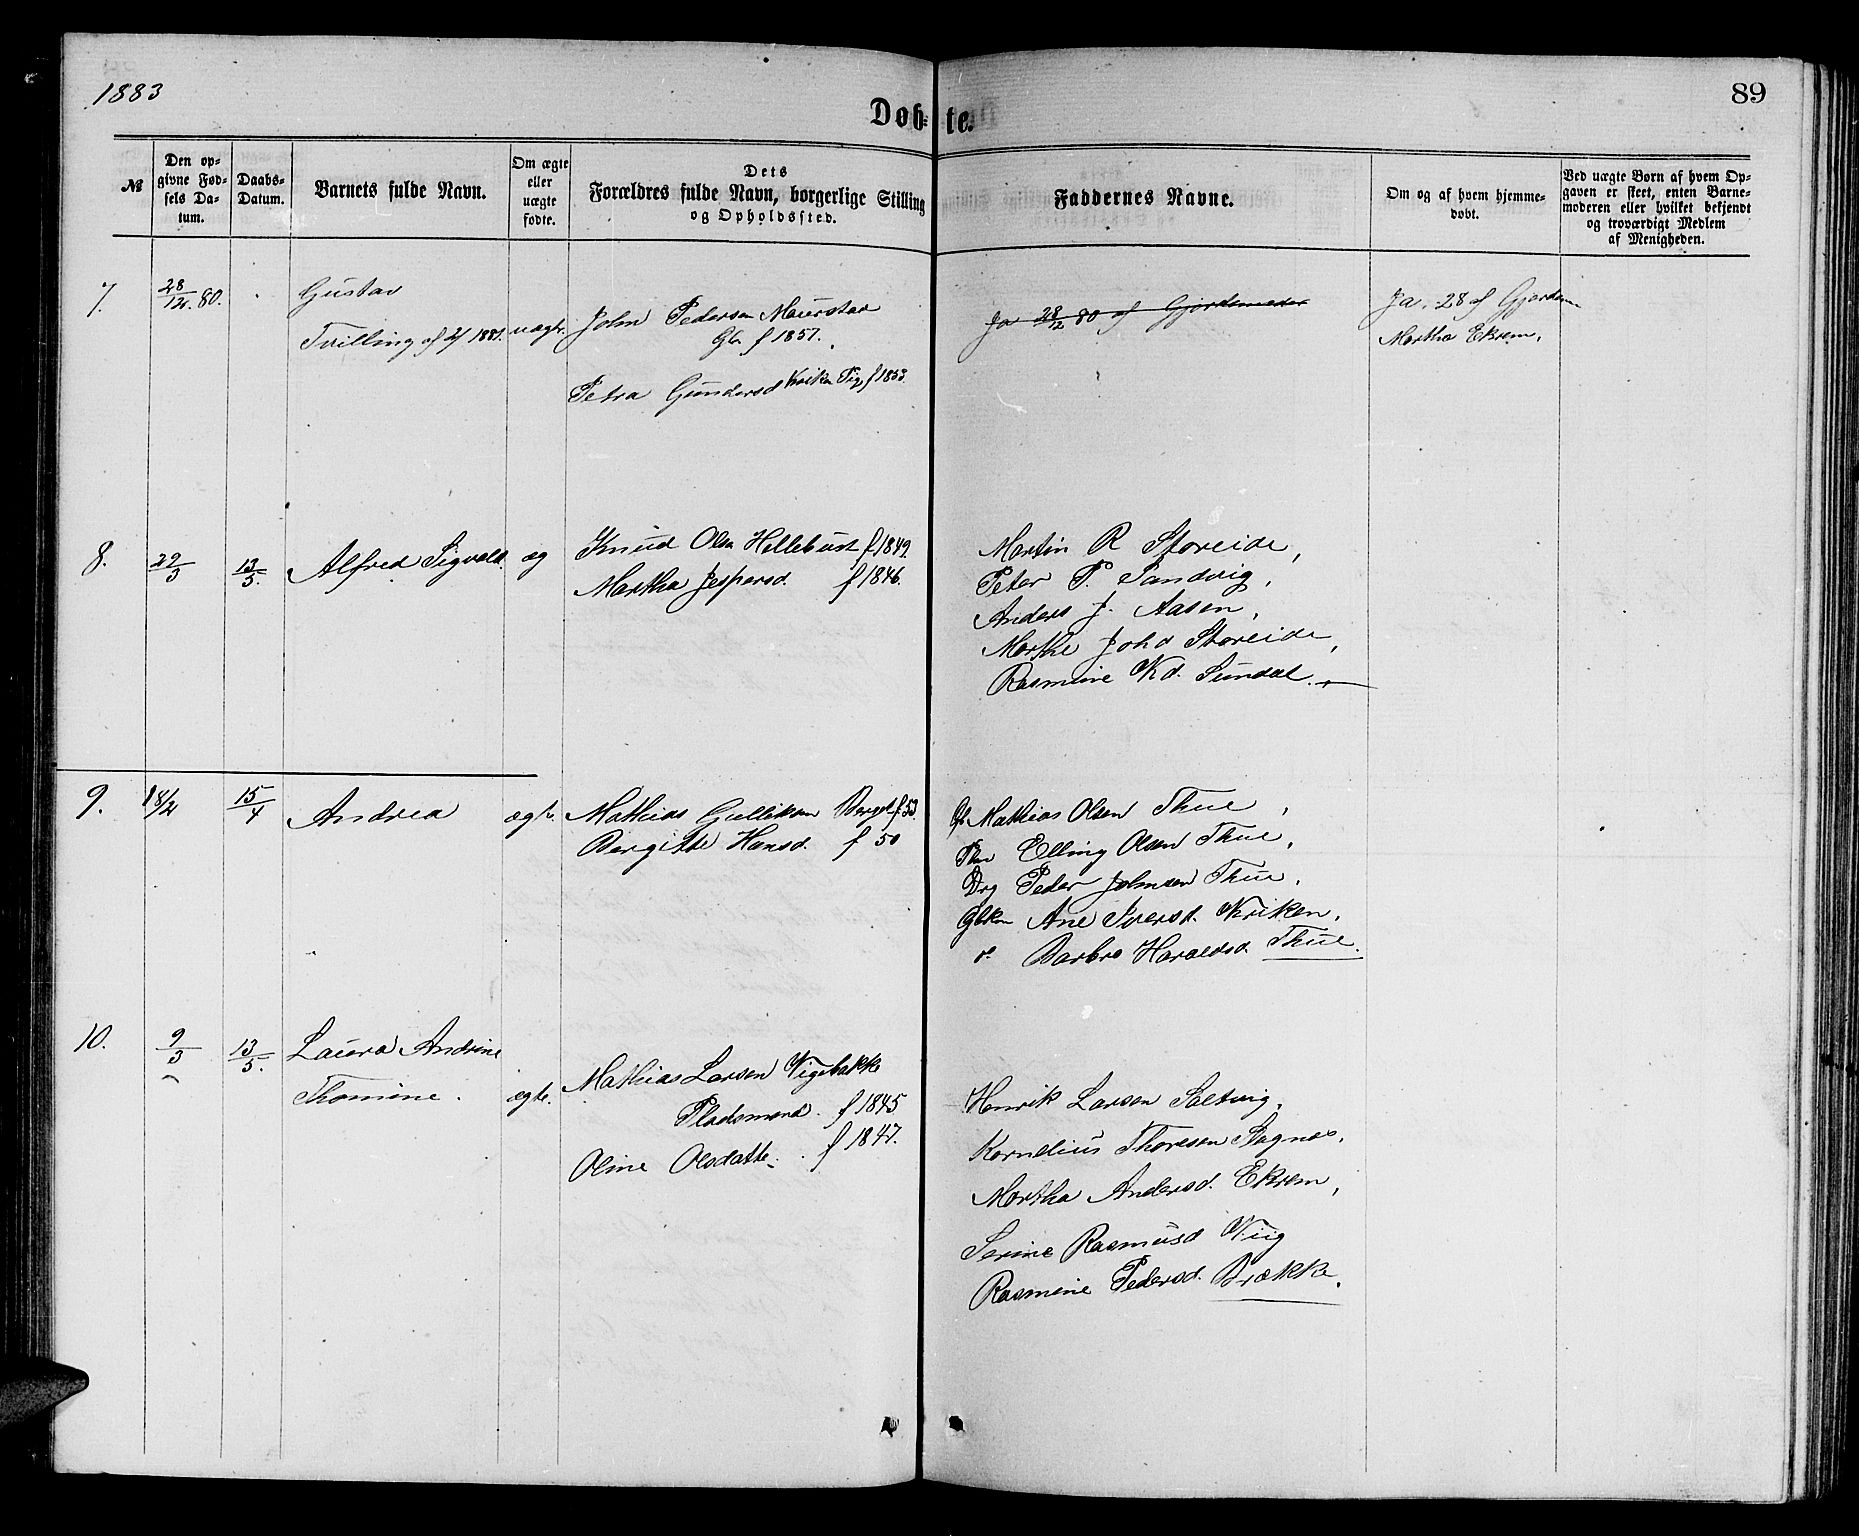 1883
89
Døb-te.
№
Den op-
givne Fød-
sels Da-
tum.
Daabs-
Datum.
Barnets fulde Navn.
Om ægte
eller
uægte
fødte.
Dets
Forældres fulde Navn, borgerlige Stilling
og Opholdssted.
Faddernes Navne.
Om og af hvem hjemme-
døbt.
Ved uægte Børn af hvem Op-
gaven er skeet, enten Barne-
moderen eller hvilket bekjendt
og troværdigt Medlem
af Menigheden.
7.
28/12 80.
Gustav
Tvilling af 2/ 1881.
uægte.
John Pedersen Maurstad
Gbr. f 1857.
Petra Gundersd Kriken Pig. f 1853.
Ja 28/12 80 af Gjordemoder
Ja. 28 af Gjordem.
Martha Ekrem.
8.
29/3
13/5.
Alfred Sigvald.
æg
Knud Olsen Hellebust f 1849.
Martha Jespersd. f 1846.
Martin R Storeide,
Peter P. Sandvig,
Anders J. Aasen,
Marthe Johd Storeide,
Rasmine Kd. Sundal.
9.
18/2
15/4
Andrea
ægte.
Mathias Gulliksen Berget f 53.
Bergitte Hansd. f 50
Gbr Mathias Olsen Thue,
Elling Olsen Thue,
Drg Peder Johnsen Thue,
Gbkn Ane Iversd. Kriken,
do Barbro Haraldsd. Thue.
10.
9/3
13/5.
Laura Andrine
Thomine.
ægte.
Mathias Larsen Vigebakke
Pladsmand. f 1845
Oline Olsdatte. f 1847.
Henrik Larsen Saltvig,
Kornelius Thoresen Stagnes,
Martha Andersd. Ekrem,
Serine Rasmusd Viig
Rasmine Pedersd. Brække.